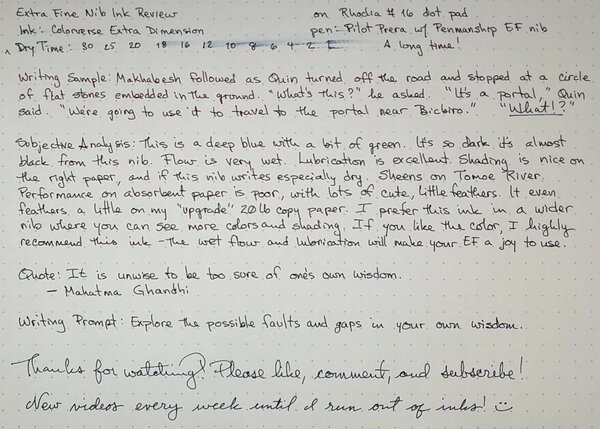 Extra Fine Nib Ink Review on Rhodia #16 dot pad
Ink: Colorverse Extra Dimension pen: Pilot Prera w/ Penmanship EF nib
Dry Time: 30 25 20 18 16 12 10 8 6 4 2 1 A long time!
Writing Sample: Makhabesh followed as Quin turned off the road and stopped at a circle
of flat stones embedded in the ground. "What's this?" he asked. "It's a portal," Quin
said. "We're going to use it to travel to the portal near Bickiro." "What!?"
Subjective Analysis: This is a deep blue with a bit of green. It's so dark it's almost
black from this nib. Flow is very wet. Lubrication is excellent. Shading is nice on
the right paper, and if this nib writes especially dry. Sheens on Tomoe River.
Performance on absorbent paper is poor, with lots of cute, little feathers. It even
feathers a little on my "upgrade" 20 lb copy paper. I prefer this ink in a wider
nib where you can see more colors and shading. If you like the color, I highly
recommend this ink - The wet flow and lubrication will make your EF a joy to use.
Quote: It is unwise to be too sure of one's own wisdom.
- Mahatma Ghandhi
Writing Prompt: Explore the possible faults and gaps in your own wisdom.
Thanks for watching! Please like, comment, and subscribe!
New videos every week until I run out of inks! :)